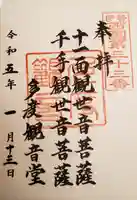 奉拝
十一面観世音菩薩
千手観世音菩薩
多度観音堂
令和五年一月十三日